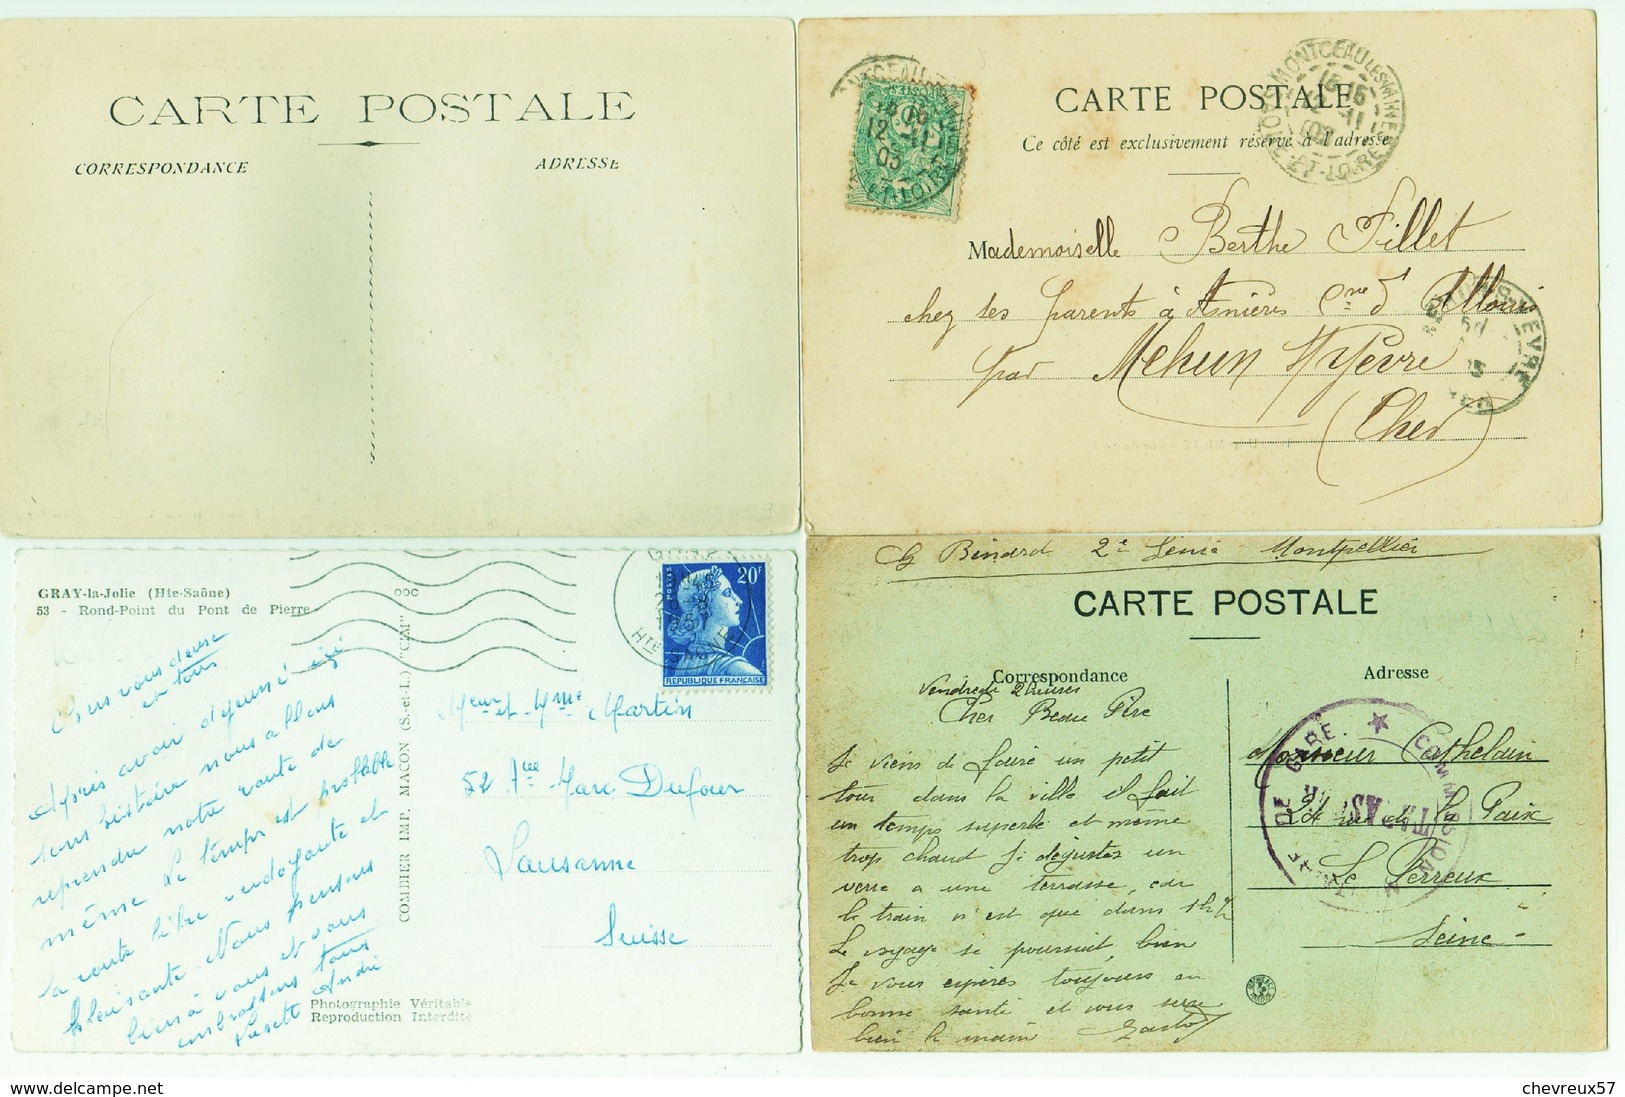 CARTE POSTALE
CORRESPONDANCE
ADRESSE
CARTE POSTALE
Ce côté est exclusivement réservé à l'adresse
MONTCEAU LES MINES
ET-LOIRE
12
03
ET-LOIRE
Mademoiselle Berthe Fillet
chez ses parents à Asnières Cne d'Allouis
par Mehun s/Yèvre
(Cher)
GRAY-la-Jolie (Hte-Saône)
53 - Rond-Point du Pont de Pierre
Chers vous deux
et tous
Après avoir déjeuné ici
sans histoire nous allons
reprendre notre route de
même. Le temps est profitable
la route libre
plaisante. Nous pensons
bien à vous et vous
embrassons tous
André
COMBIER IMP. MACON (S.-et-L.) "CIM"
Photographie Véritable
Reproduction Interdite
POSTES
20F
REPUBLIQUE FRANÇAISE
HTE SAONE
Meur et Mme Martin
52 Aue Marc Dufour
Lausanne
Suisse
G Binard 2e Génie Montpellier
CARTE POSTALE
Correspondance
Adresse
Vendredi 2 heures
Cher Beau Père
Je viens de faire un petit
tour dans la ville il fait
un temps superbe et même
trop chaud Je déguste un
verre a une terrasse, car
le train n'est que dans 1h ½
Le voyage se poursuit bien
Je vous espères toujours en
bonne santé et vous serre
bien la main
COMMISSION
DE GARE
Monsieur Cathelain
rue de la Paix
Le Perreux
Seine
delcampe.net
chevreux57